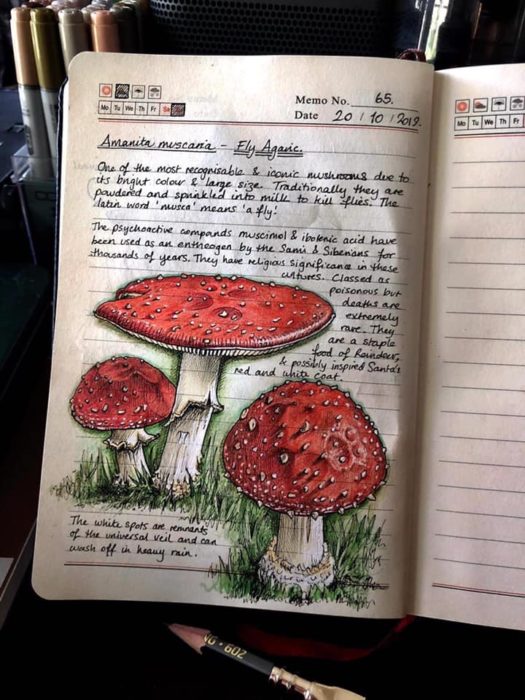 Memo No. 65.
Mo Tu We Th Fr Sa
Date 20 / 10 / 2019.
Amanita muscaria - Fly Agaric.
One of the most recognisable & iconic mushrooms due to
its bright colour & large size. Traditionally they are
powdered and sprinkled into milk to kill flies. The
latin word 'musca' means 'a fly'.
The psychoactive compounds muscimol & ibotenic acid have
been used as an entheogen by the Sami & Siberians for
thousands of years. They have religious significance in these
cultures. Classed as
poisonous but
deaths are
extremely
rare. They
are a staple
food of Reindeer,
& possibly inspired Santa's
red and white coat.
The white spots are remnants
of the universal veil and can
wash off in heavy rain.
Mo Tu We Th
NG · 602